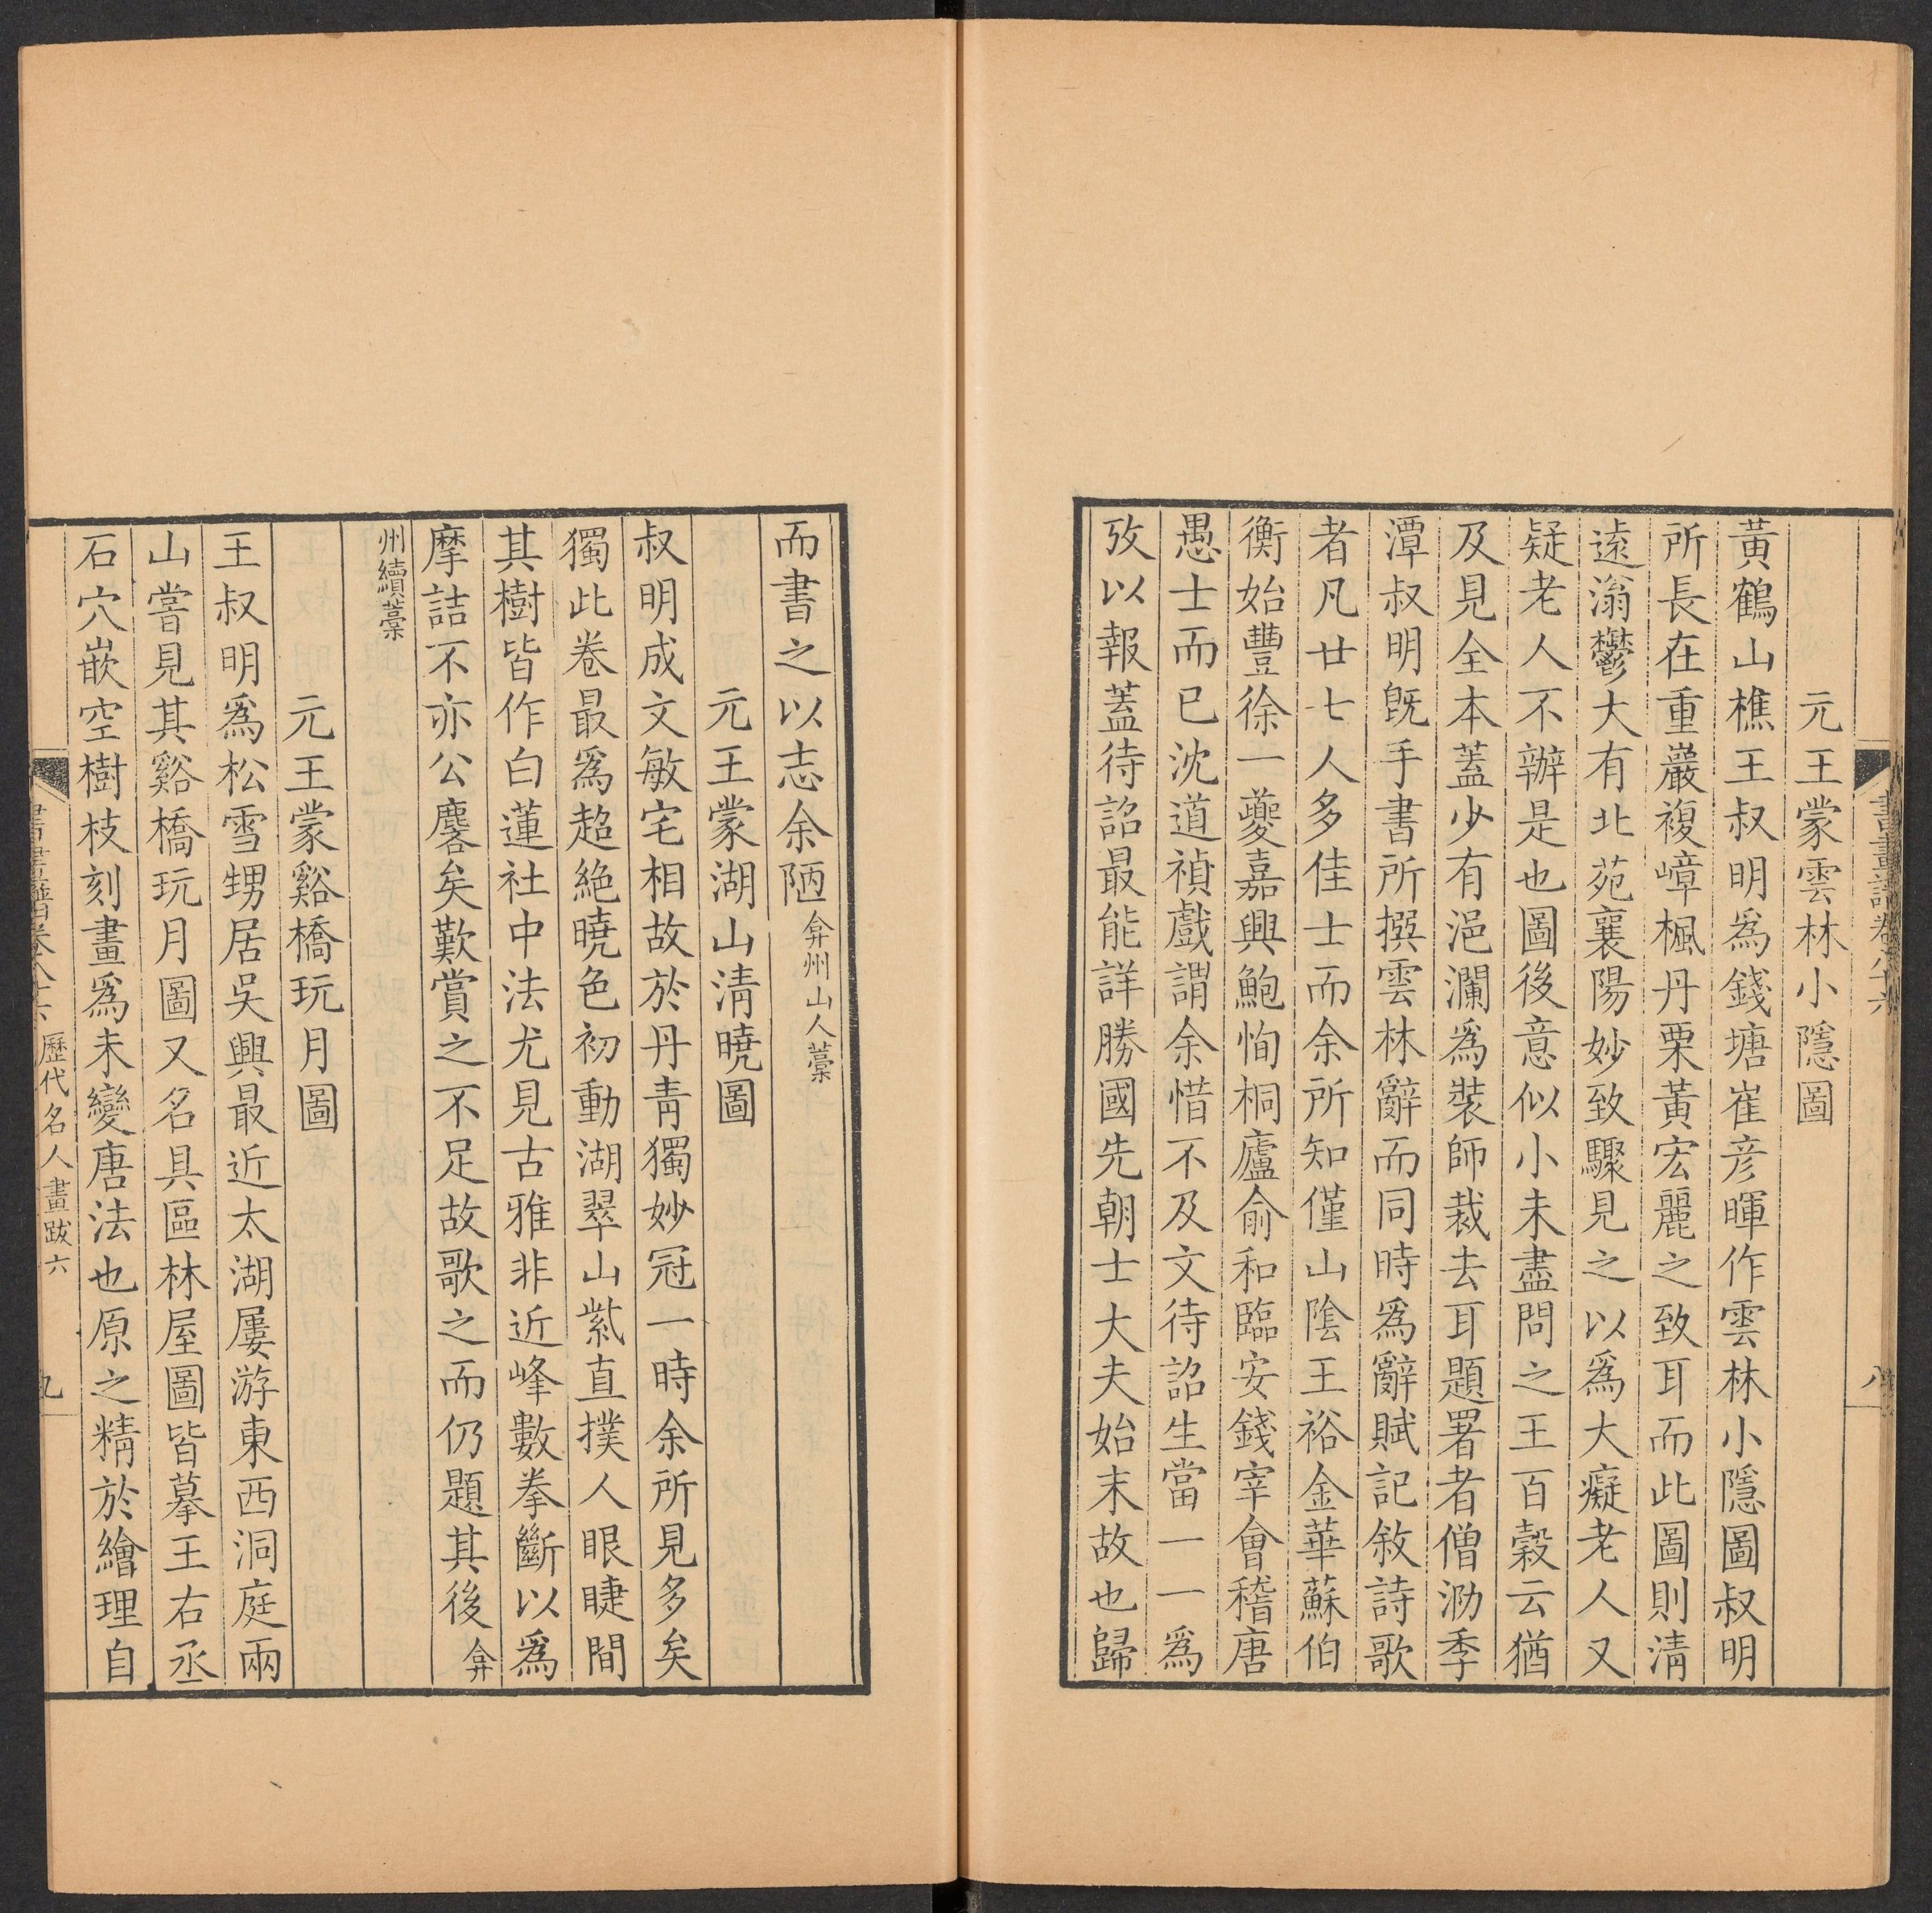 書畫譜卷八十六
八
元王蒙雲林小隱圖
黃鶴山樵王叔明爲錢塘崔彦暉作雲林小隱圖叔明
所長在重巖複嶂楓丹栗黃宏麗之致耳而此圖則清
遠滃鬱大有北苑襄陽妙致驟見之以爲大癡老人又
疑老人不辦是也圖後意似小未盡問之王百穀云猶
及見全本蓋少有浥瀾爲裝師裁去耳題署者僧泐季
潭叔明旣手書所撰雲林辭而同時爲辭賦記敘詩歌
者凡廿七人多佳士而余所知僅山陰王裕金華蘇伯
衡始豐徐一夔嘉興鮑恂桐廬俞和臨安錢宰會稽唐
愚士而已沈道禎戲謂余惜不及文待詔生當一一爲
攷以報蓋待詔最能詳勝國先朝士大夫始末故也歸
而書之以志余陋弇州山人藁
元王蒙湖山清曉圖
叔明成文敏宅相故於丹青獨妙冠一時余所見多矣
獨此卷最爲超絶曉色初動湖翠山紫直撲人眼睫間
其樹皆作白蓮社中法尤見古雅非近峰數拳斷以爲
摩詰不亦公麐矣歎賞之不足故歌之而仍題其後弇
州續藁
元王蒙谿橋玩月圖
王叔明爲松雪甥居吳興最近太湖屢游東西洞庭兩
山嘗見其谿橋玩月圖又名具區林屋圖皆摹王右丞
石穴嵌空樹枝刻畫爲未變唐法也原之精於繪理自
書畫譜卷八十六 歷代名人畫跋六
九